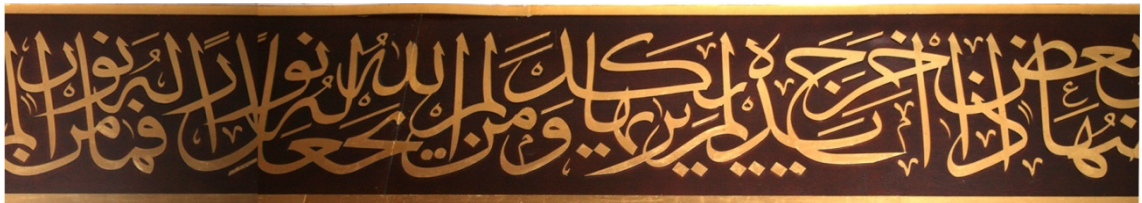 بَعْضٍ إِذَا أَخْرَجَ يَدَهُ لَمْ يَكَدْ يَرَاهَا وَمَنْ لَمْ يَجْعَلِ اللّٰهُ لَهُ نُورًا فَمَا لَهُ مِنْ نُورٍ